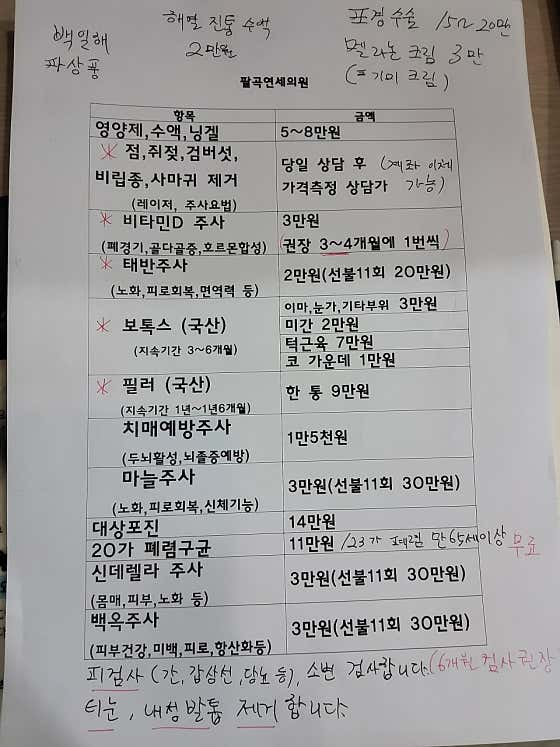 백일해
파상풍
해열 진통 수액
2만원
포경수술 15~20만
멜라논 크림 3만
(= 기미 크림)
팔곡연세의원
항목 금액
영양제,수액,닝겔 5~8만원
* 점,쥐젖,검버섯,
비립종,사마귀 제거
(레이저, 주사요법)
당일 상담 후 (계좌이체
가격측정 상담가 가능)
* 비타민D 주사
(폐경기,골다골증,호르몬합성)
3만원
(권장 3~4개월에 1번씩)
* 태반주사
(노화,피로회복,면역력 등)
2만원(선불11회 20만원)
* 보톡스 (국산)
(지속기간 3~6개월)
이마,눈가,기타부위 3만원
미간 2만원
턱근육 7만원
코 가운데 1만원
* 필러 (국산)
(지속기간 1년~1년6개월)
한 통 9만원
치매예방주사
(두뇌활성,뇌졸중예방)
1만5천원
마늘주사
(노화,피로회복,신체기능)
3만원(선불11회 30만원)
대상포진 14만원
20가 폐렴구균 11만원 /23가 폐렴 만65세이상 무료
신데렐라 주사
(몸매,피부,노화 등)
3만원(선불11회 30만원)
백옥주사
(피부건강,미백,피로,항산화등)
3만원(선불11회 30만원)
피검사 (간, 갑상선, 당뇨 등), 소변 검사합니다. (6개월 검사 권장)
티눈, 내성발톱 제거 합니다.